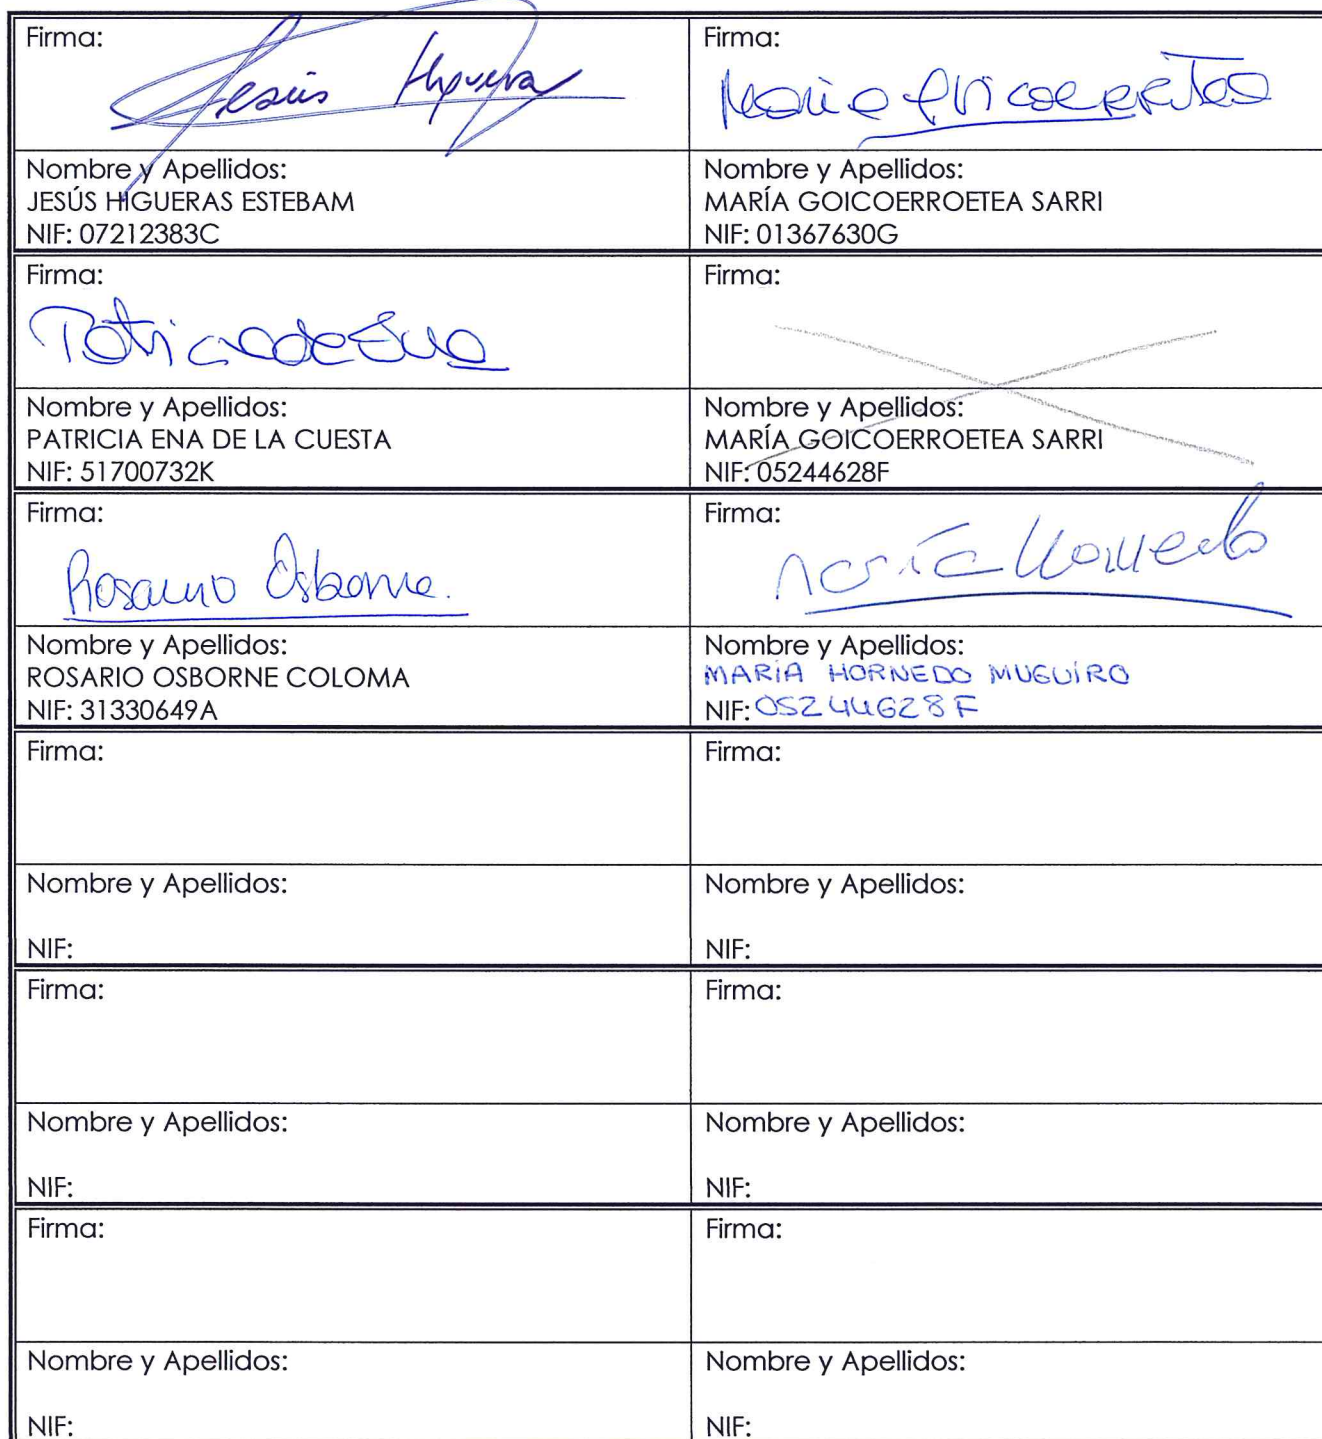 Firma:
Jesús Higuera
Firma:
Nombre y Apellidos:
JESÚS HIGUERAS ESTEBAM
NIF: 07212383C
Nombre y Apellidos:
MARÍA GOICOERROETEA SARRI
NIF: 01367630G
Firma:
Patricia de Ena
Firma:
Nombre y Apellidos:
PATRICIA ENA DE LA CUESTA
NIF: 51700732K
Nombre y Apellidos:
MARÍA GOICOERROETEA SARRI
NIF: 05244628F
Firma:
Rosario Osborne.
Firma:
María Hornedo
Nombre y Apellidos:
ROSARIO OSBORNE COLOMA
NIF: 31330649A
Nombre y Apellidos:
MARÍA HORNEDO MUGUIRO
NIF: 05244628F
Firma:
Firma:
Nombre y Apellidos:
NIF:
Nombre y Apellidos:
NIF:
Firma:
Firma:
Nombre y Apellidos:
NIF:
Nombre y Apellidos:
NIF:
Firma:
Firma:
Nombre y Apellidos:
NIF:
Nombre y Apellidos:
NIF: